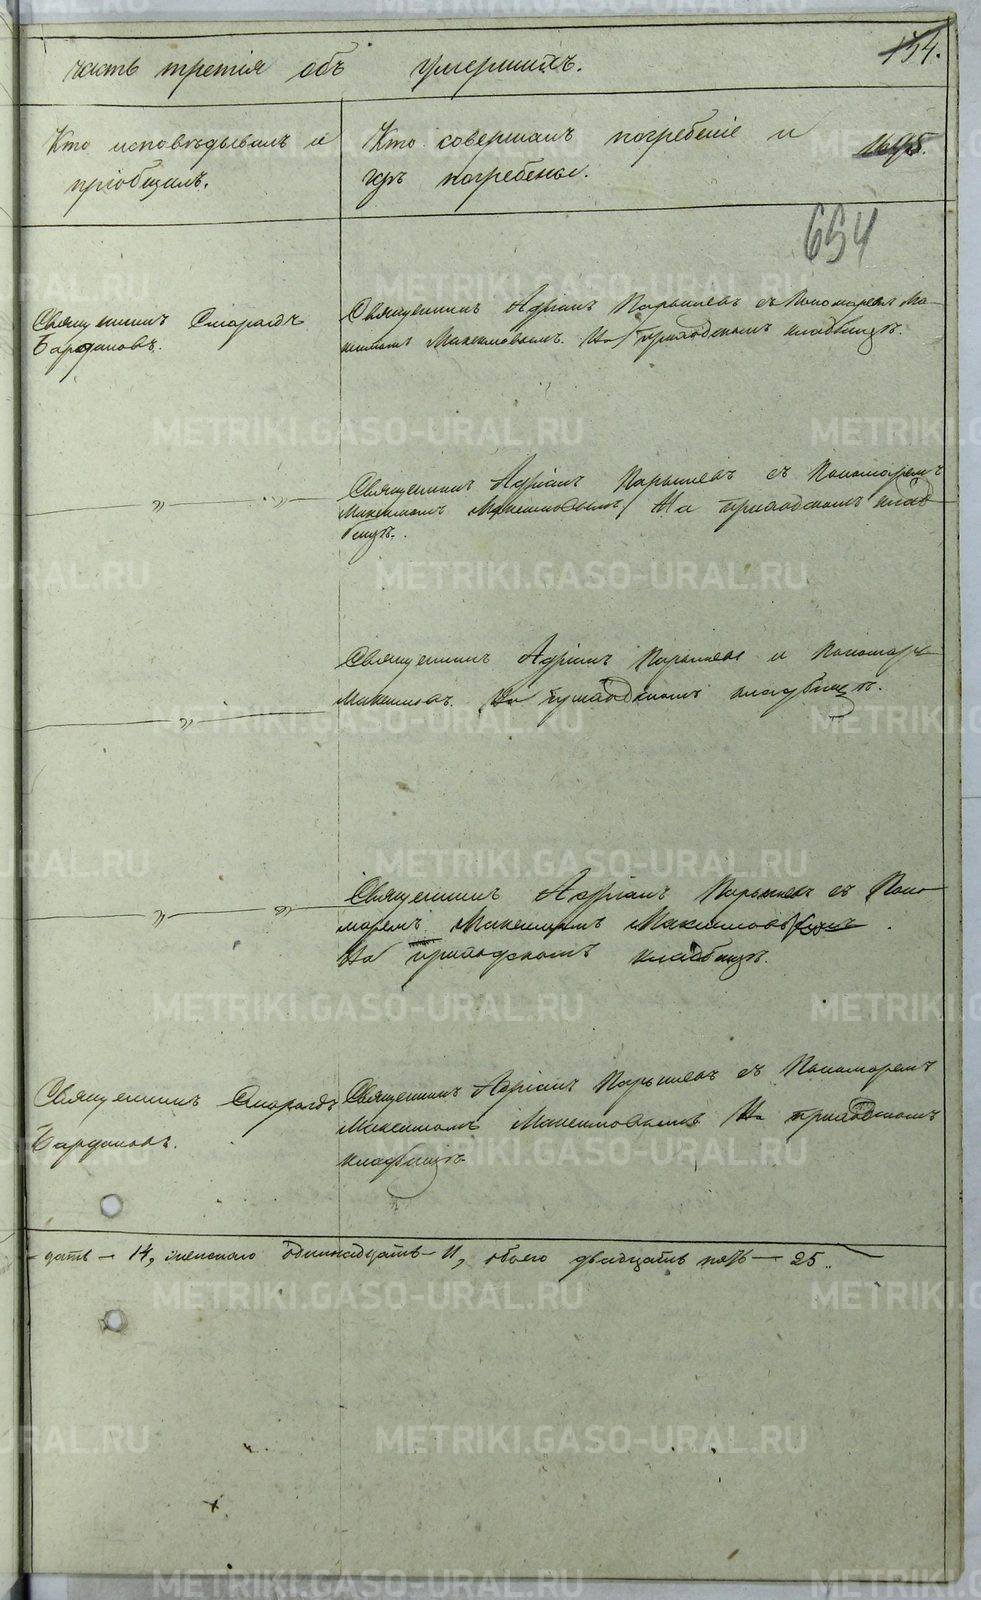 часть третія объ умершихъ.
134.
Кто исповѣдывалъ и
пріобщилъ.
Кто совершалъ погребеніе и
гдѣ погребены.
654
Священникъ Смарагдъ
Бардаковъ.
Священникъ Адріанъ Парышевъ съ Пономаремъ Ма-
ксимомъ Максимовымъ. На приходскомъ кладбищѣ.
—„— —„—
Священникъ Адріанъ Парышевъ съ Пономаремъ
Максимомъ Максимовымъ. На приходскомъ клад
бищѣ.
—„—
Священникъ Адріанъ Парышевъ и Пономарь
Максимовъ. На приходскомъ кладбищѣ.
—„— —„—
Священникъ Адріанъ Парышевъ съ Поно-
маремъ Максимомъ Максимовымъ.
На приходскомъ кладбищѣ.
Священникъ Смарагдъ
Бардаковъ.
Священникъ Адріанъ Парышевъ съ Пономаремъ
Максимомъ Максимовымъ На приходскомъ
кладбищѣ
дать — 14, женскаго одиннадцать — 11, обоего двадцать пять — 25.
METRIKI.GASO-URAL.RU